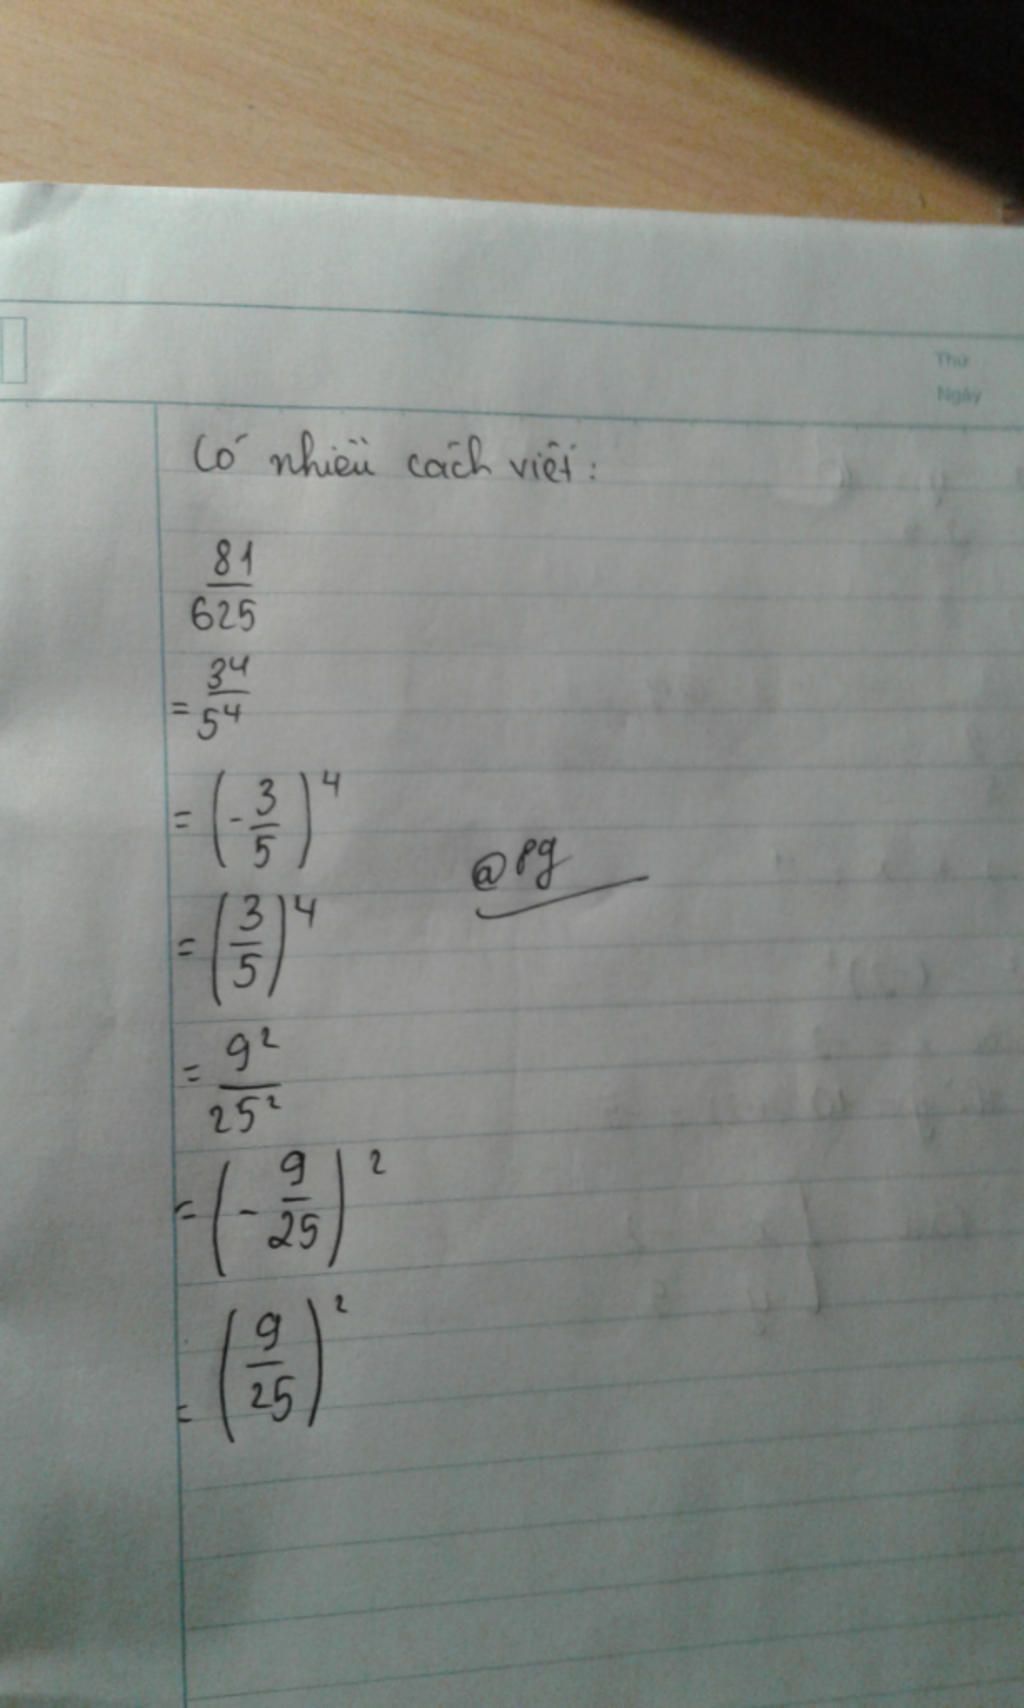 Thứ
Ngày
Có nhiều cách viết:
81/625
= 3⁴/5⁴
= (-3/5)⁴
@pg
= (3/5)⁴
= 9²/25²
= (-9/25)²
= (9/25)²